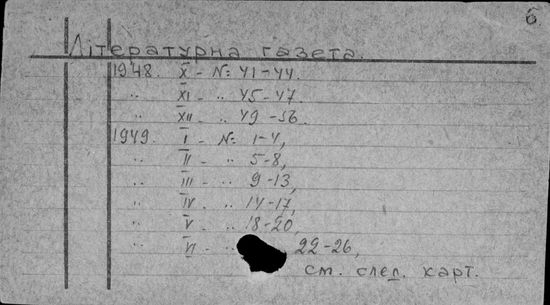 6.
Літературна газета.
1948. X - №: 41-44.
" XI - " 45-47.
" XII - " 49-56.
1949. I - №: 1-4,
" II - " 5-8,
" III - " 9-13,
" IV - " 14-17,
" V - " 18-20,
" VI - " 22-26,
см. след. карт.